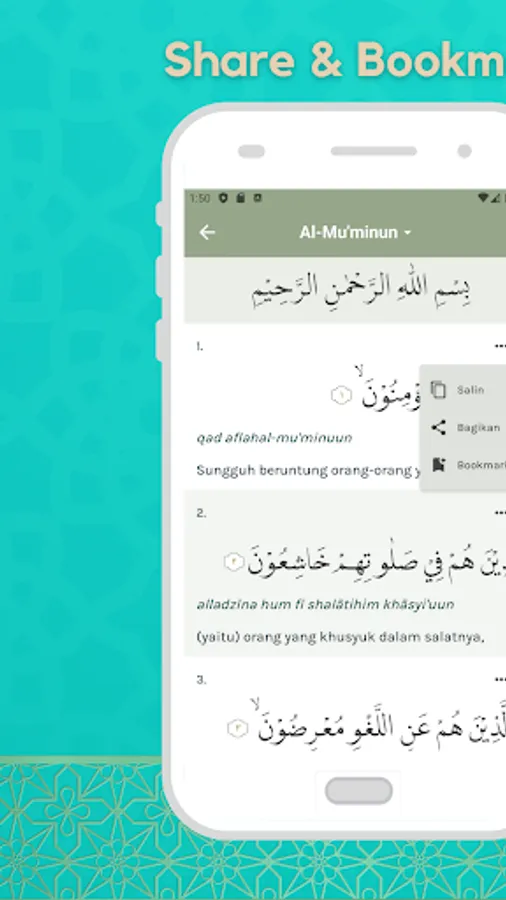 Share & Bookm
1:50
Al-Mu'minun
بِسْمِ اللّٰهِ الرَّحْمٰنِ الرَّحِيْمِ
1.
ؤْمِنُوْنَ ۙ ١
Salin
qad aflahal-mu'minuun
Bagikan
Sungguh beruntung orang-orang y
Bookmark
2.
ذِيْنَ هُمْ فِيْ صَلٰوتِهِمْ خَاشِعُوْنَ ٢
alladzîna hum fî shalâtihim khâsyi'uun
(yaitu) orang yang khusyuk dalam salatnya,
3.
لَّذِيْنَ هُمْ عَنِ اللَّغْوِ مُعْرِضُوْنَ ۙ ٣